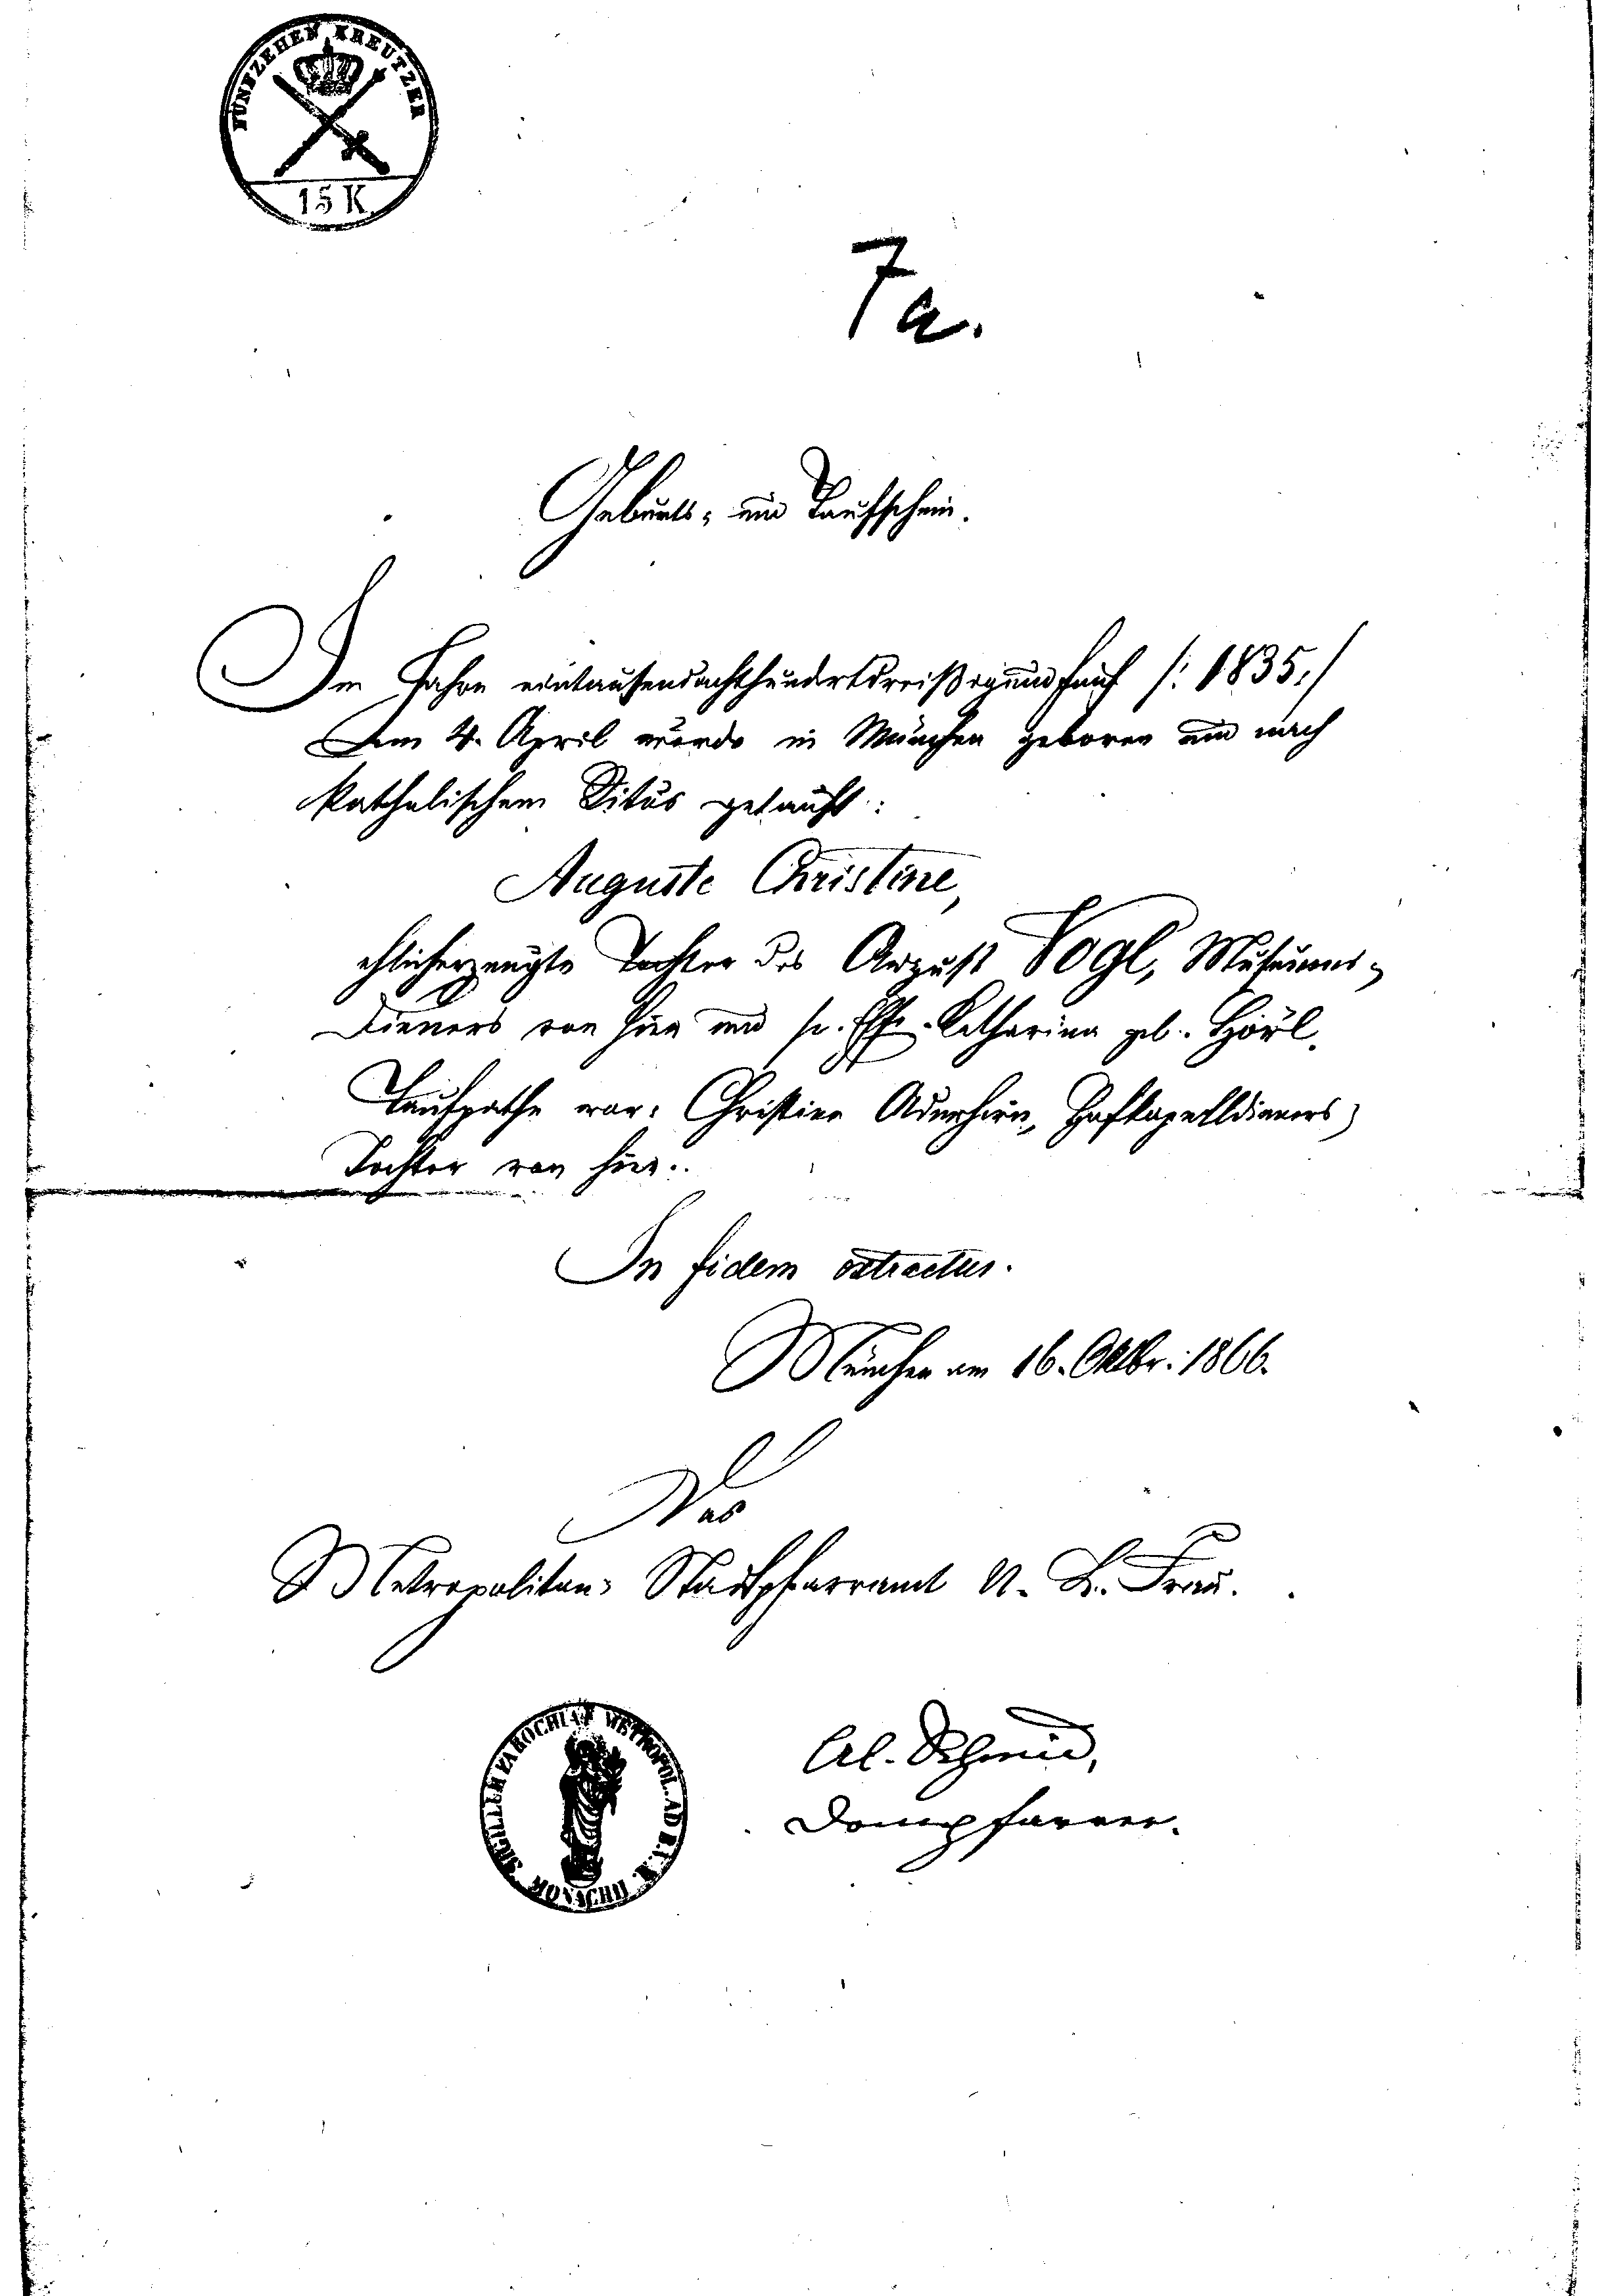 FÜNFZEHEN KREUTZER
15 K
7a.
Geburts- und Taufschein.
Im Jahre eintausendachthundertdreißigundfünf /: 1835 :/
am 4. April wurde in München geboren und nach
katholischem Ritus getauft:
Auguste Christine,
ehlicherzeugte Tochter des August Vogl, Museums-
dieners von hier und s. Ehefr. Katharina geb. Hörl.
Taufpathe war: Christine Hofkapelldieners
Tochter von hier.
In fidem extractus.
München am 16. Oktbr. 1866.
Das
Metropolitan- Stadtpfarramt U. L. Frau.
Al. Schmid,
Dompfarrer.
SIGILLUM PAROCHIAE METROPOL. AD B.V.M. MONACHII